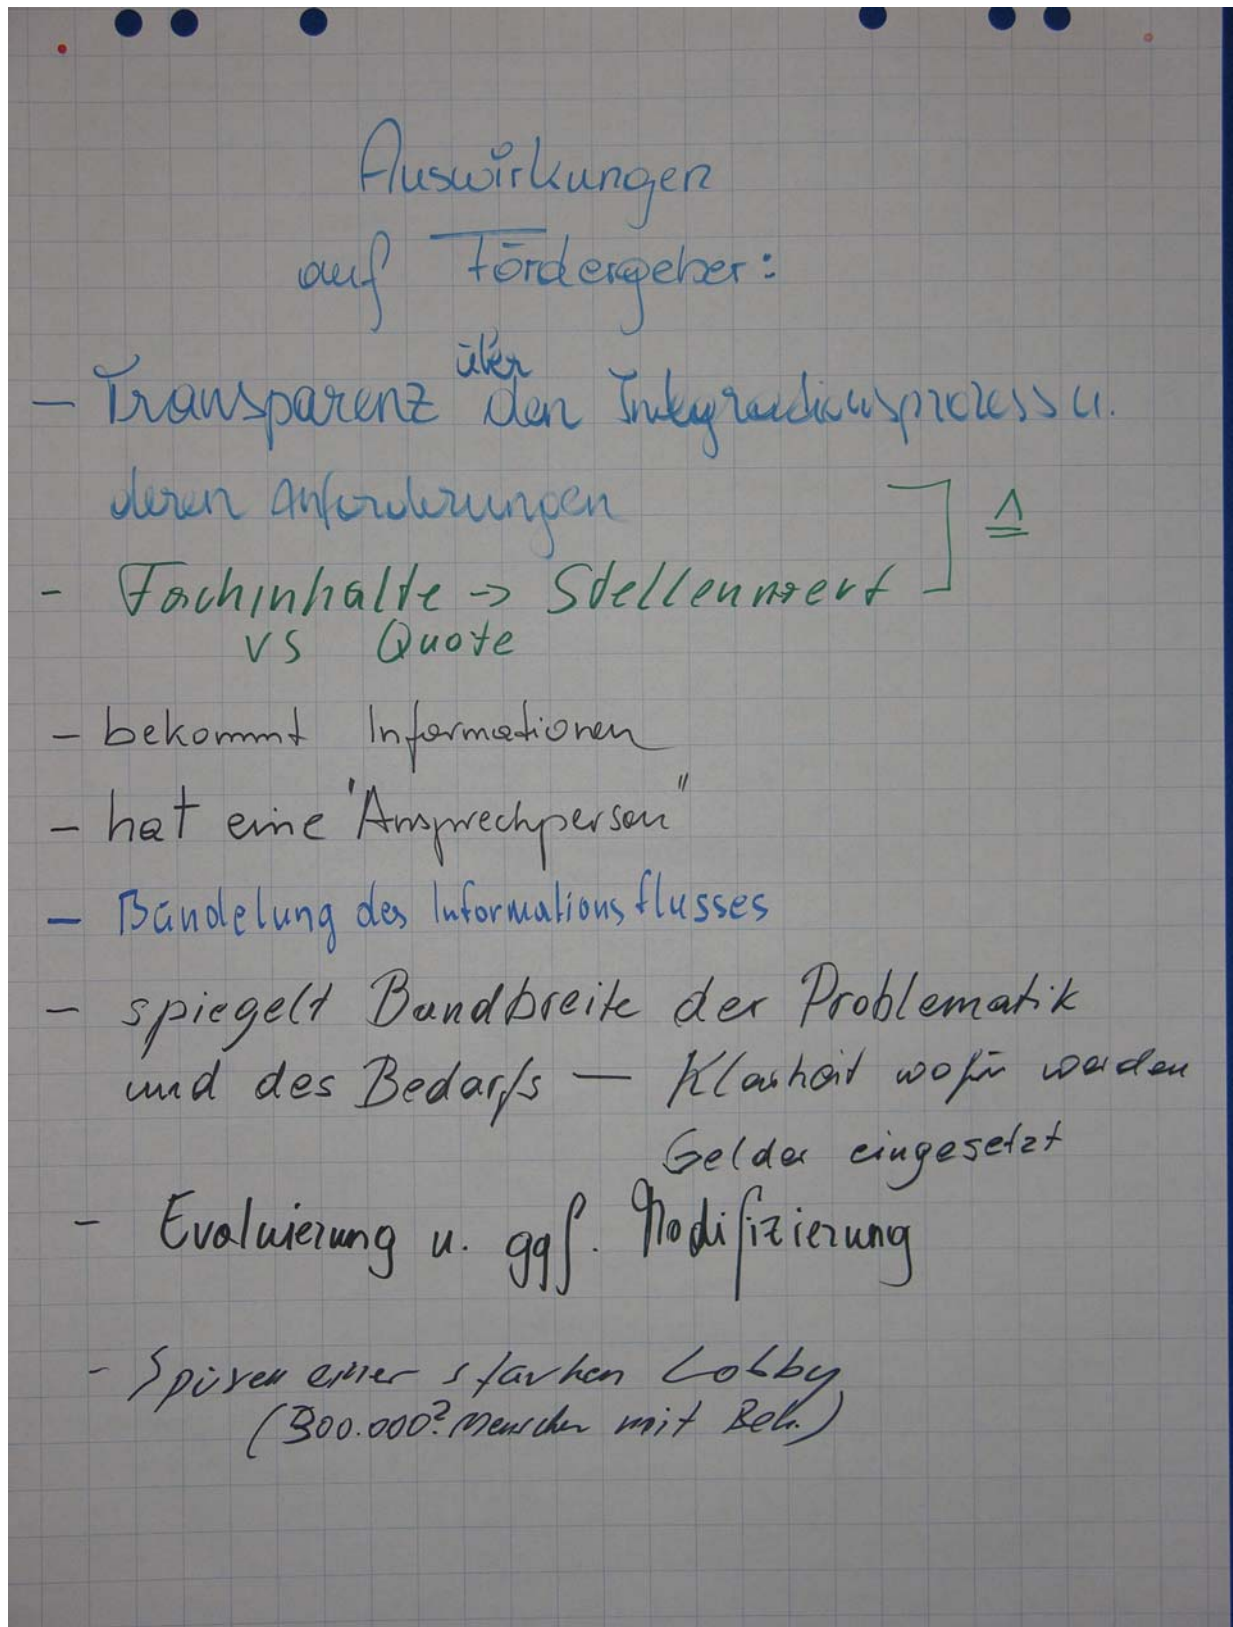 Auswirkungen
auf Fördergeber:
über
- Transparenz den Integrationsprozess u.
deren Anforderungen
- Fachinhalte -> Stellenwert
vs Quote
1
- bekommt Informationen
- hat eine "Ansprechperson"
- Bündelung des Informationsflusses
- spiegelt Bandbreite der Problematik
und des Bedarfs — Klarheit wofür werden
Gelder eingesetzt
- Evaluierung u. ggf. Modifizierung
- Spüren einer starken Lobby
(300.000? Menschen mit Beh.)